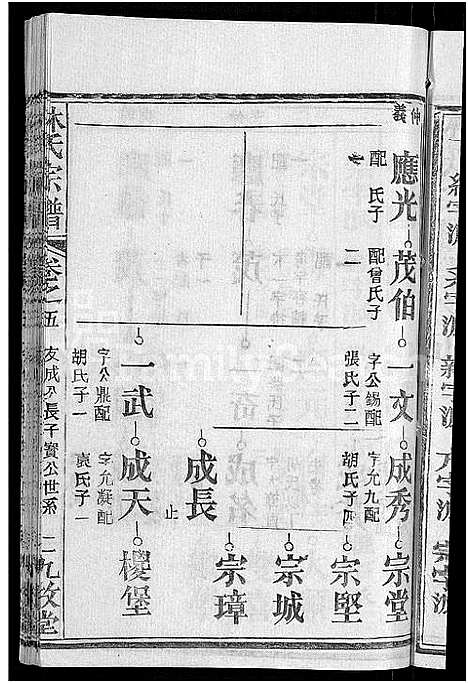 仲義
應光
配 氏子一
茂伯
配曾氏子二
一文
字公錫配
張氏子二
成秀
字允九配
胡氏子四
宗堂
宗堅
宗城
宗璋
成長
止
一武
字公鼎配
胡氏子一
成天
字允凝配
袁氏子一
樱堡
林氏宗譜
卷之一五
友成公長子寳公世系
九牧堂